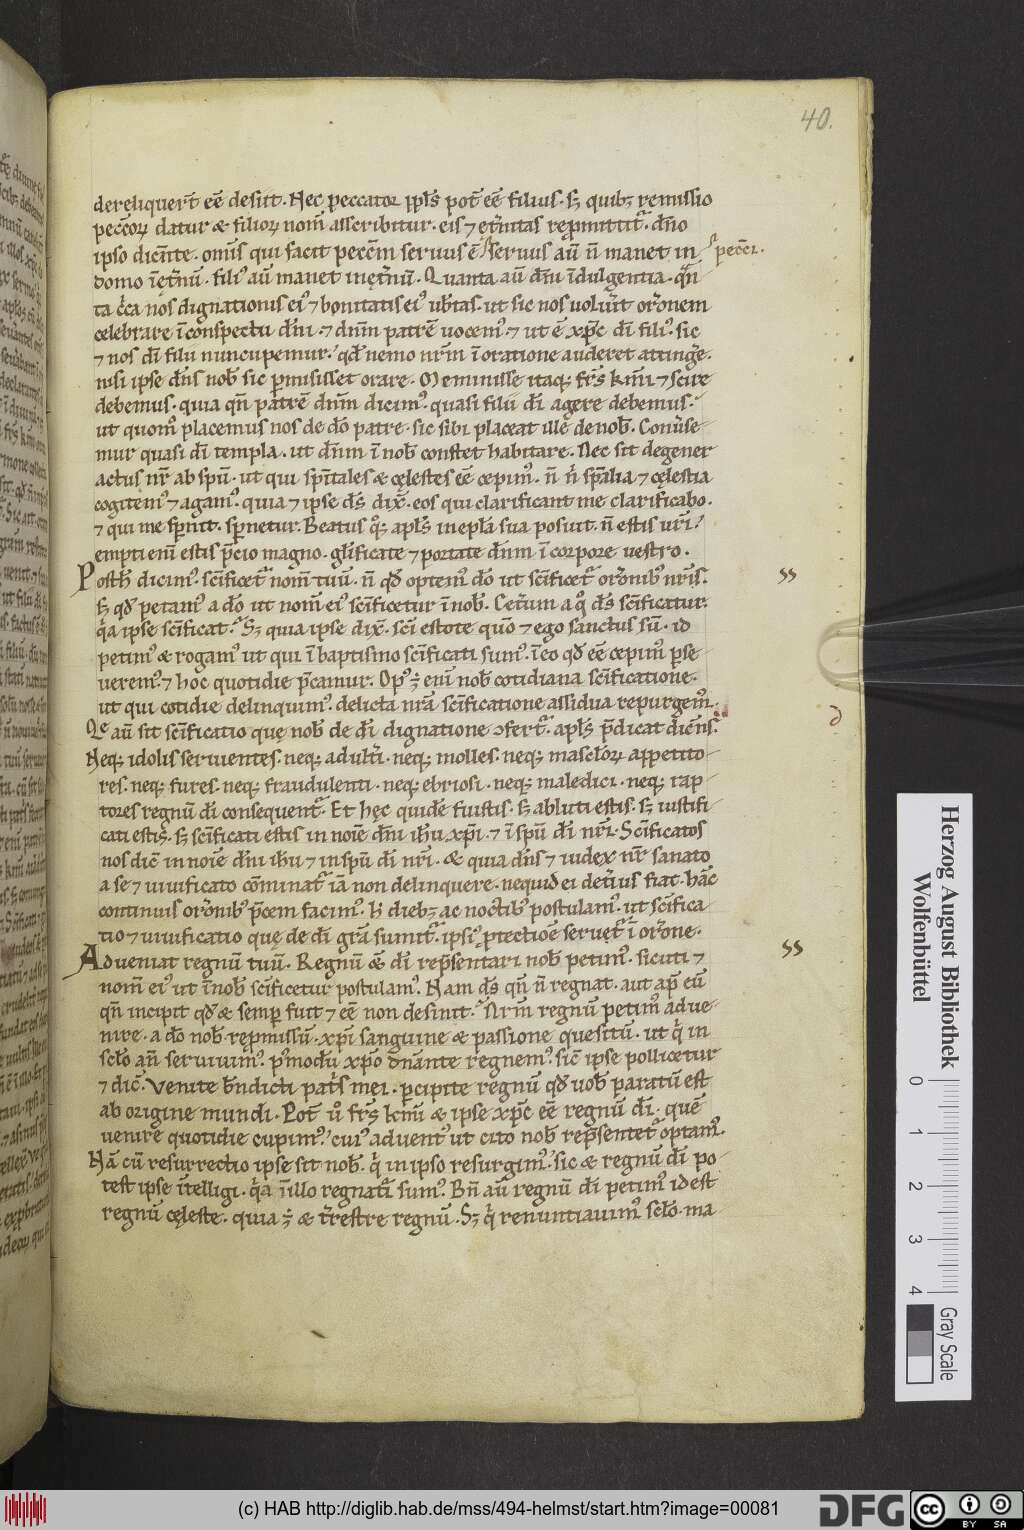 40.
derelinquer̄t eē desiit. Nec peccator ppl̄s pot̄ eē filius. sꝫ quibꝫ remissio
peccōꝝ datur & filioꝝ nom̄ asscribitur. eis ⁊ et̄nitas repromittit᷑. dn̄o
ipso dicēte. omīs qui facit pecc̄m seruus ē seruus aū n̄ manet in
pecc̄i.
domo ī et̄nū. filiꝰ aū manet in et̄nū. Quanta aū dn̄i īdulgentia. qn̄
ta c̓ca nos dignationis eiꝰ ⁊ bonitatis eiꝰ ub̄tas. ut sic nos uoluīt or̄onem
celebrare ī conspectu dn̄i. ⁊ dn̄m patrē uocemꝰ. ⁊ ut ē xp̄c dī filiꝰ. sic
⁊ nos dī filii nuncupemur. qd̄ nemo nrm̄ ī oratione auderet atting̓e.
nisi ipse dn̄s nob̄ sic p̱misisset orare. Meminisse itaqꝫ fr̄s kmī ⁊ scire
debemus. quia qn̄ patrē dn̄m dicimꝰ. quasi filii dī agere debemus.
ut quom̄ placemus nos de dō patre. sic sibi placeat ille de nob̄. Conūse
mur quasi dī templa. ut dn̄m ī nob̄ constet habitare. Nec sit degener
actus nr̄ ab spū. ut qui spītales & cęlestes eē cepimꝰ. n̄ n̓ spālia ⁊ cęlestia
cogitemꝰ ⁊ agamꝰ. quia ⁊ ipse dn̄s dix̄. eos qui clarificant me clarificabo.
⁊ qui me sp̄nit. sp̄netur. Beatus qꝫ apl̄s in epl̄a sua posuit. n̄ estis ur̄i
empti enī estis p̄cio magno. glīficate ⁊ portate dn̄m ī corpore uestro.
Posth̄ dicimꝰ. scīficet᷑ nom̄ tuū. n̄ qd̄ optemꝰ dō ut scīficet᷑ or̄onibꝰ nr̄is.
ss
sꝫ qd̄ petamꝰ a dō ut nom̄ eiꝰ scīficetur ī nob̄. Cet̓um a qͦ dn̄s scīficatur.
qͣ ipse scīficat. Sꝫ quia ipse dix̄. scī estote quō ⁊ ego sanctus sū. id
petimꝰ & rogamꝰ ut qui ī baptismo scīficati sumꝰ. ī eo qd̄ eē cepimꝰ p̱se
ueremꝰ. ⁊ hoc quotidie p̄camur. Opꝰ ꝫ̄ enī nob̄ cotidiana scīficatione.
ut qui cotidie delinquimꝰ. delicta nr̄a scīficatione assidua repurgemꝰ.
Qe aū sit scīficatio que nob̄ de dī dignatione ꝯfert᷑. apl̄s p̄dicat dicēs.
Neqꝫ idolis seruientes. neqꝫ adult̓i. neqꝫ molles. neqꝫ mascl̄oꝝ appetito
res. neqꝫ fures. neqꝫ fraudulenti. neqꝫ ebriosi. neqꝫ maledici. neqꝫ rap
tores regnū dī consequent᷑. Et hęc quidē fuistis. sꝫ abluti estis. sꝫ iustifi
cati estis. sꝫ scīficati estis in noīe dn̄i ih̄u xp̄i. ⁊ ī spū dī nr̄i. Scīficatos
nos dic̄ in noīe dn̄i ih̄u ⁊ in spū dī nr̄i. & quia dn̄s ⁊ iudex nr̄ sanato
a se ⁊ uiuificato cōminat᷑ iā non delinquere. ne quid ei det̓ius fiat. hāc
continuis or̄onibꝰ p̄cem facimꝰ. h̄ diebꝫ ac noctibꝰ postulamꝰ. ut scīfica
tio ⁊ uiuificatio quę de dī grā sumit᷑. ipsiꝰ ptectiōe seruet᷑ ī or̄one.
Adueniat regnū tuū. Regnū & dī rep̄sentari nob̄ petimꝰ. sicuti ⁊
ss
nom̄ eiꝰ ut ī nob̄ scīficetur postulamꝰ. Nam dn̄s qn̄ n̄ regnat. aut ap̄ eū
qn̄ incipit qd̄ & semp̱ fuit ⁊ eē non desinit. Nrm̄ regnū petimꝰ adue
nire. a dō nob̄ repmissū. xp̄i sanguine & passione quesitū. ut qͥ in
scl̄o añ seruiuimꝰ. pꝰmodū xp̄o dn̄ante regnemꝰ. sic̄ ipse pollicetur
⁊ dic̄. Venite bn̄dicti pat̓s mei. p̱cipite regnū qd̄ uob̄ paratū est
ab origine mundi. Pot̄ ū fr̄s kmī & ipse xp̄c eē regnū dī. quē
uenire quotidie cupimꝰ. cuiꝰ aduentꝰ ut cito nob̄ rep̄sentet᷑ optamꝰ.
Nā cū resurrectio ipse sit nob̄. qͥ in ipso resurgimꝰ. sic & regnū dī po
test ipse ītelligi. qͣ ī illo regnatī sumꝰ. Bn̄ aū regnū dī petimꝰ id est
regnū cęleste. quia ꝫ̄ & t̓restre regnū. Sꝫ qͥ renuntiauimꝰ scl̄o. ma
Herzog August Bibliothek
Wolfenbüttel
0 1 2 3 4
Gray Scale
(c) HAB http://diglib.hab.de/mss/494-helmst/start.htm?image=00081
DFG
cc BY SA